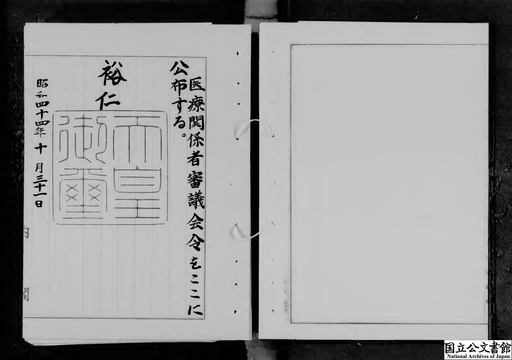 医療関係者審議会令をここに
公布する。
裕仁
天皇
御璽
昭和四十四年十月三十一日
内閣
国立公文書館
National Archives of Japan